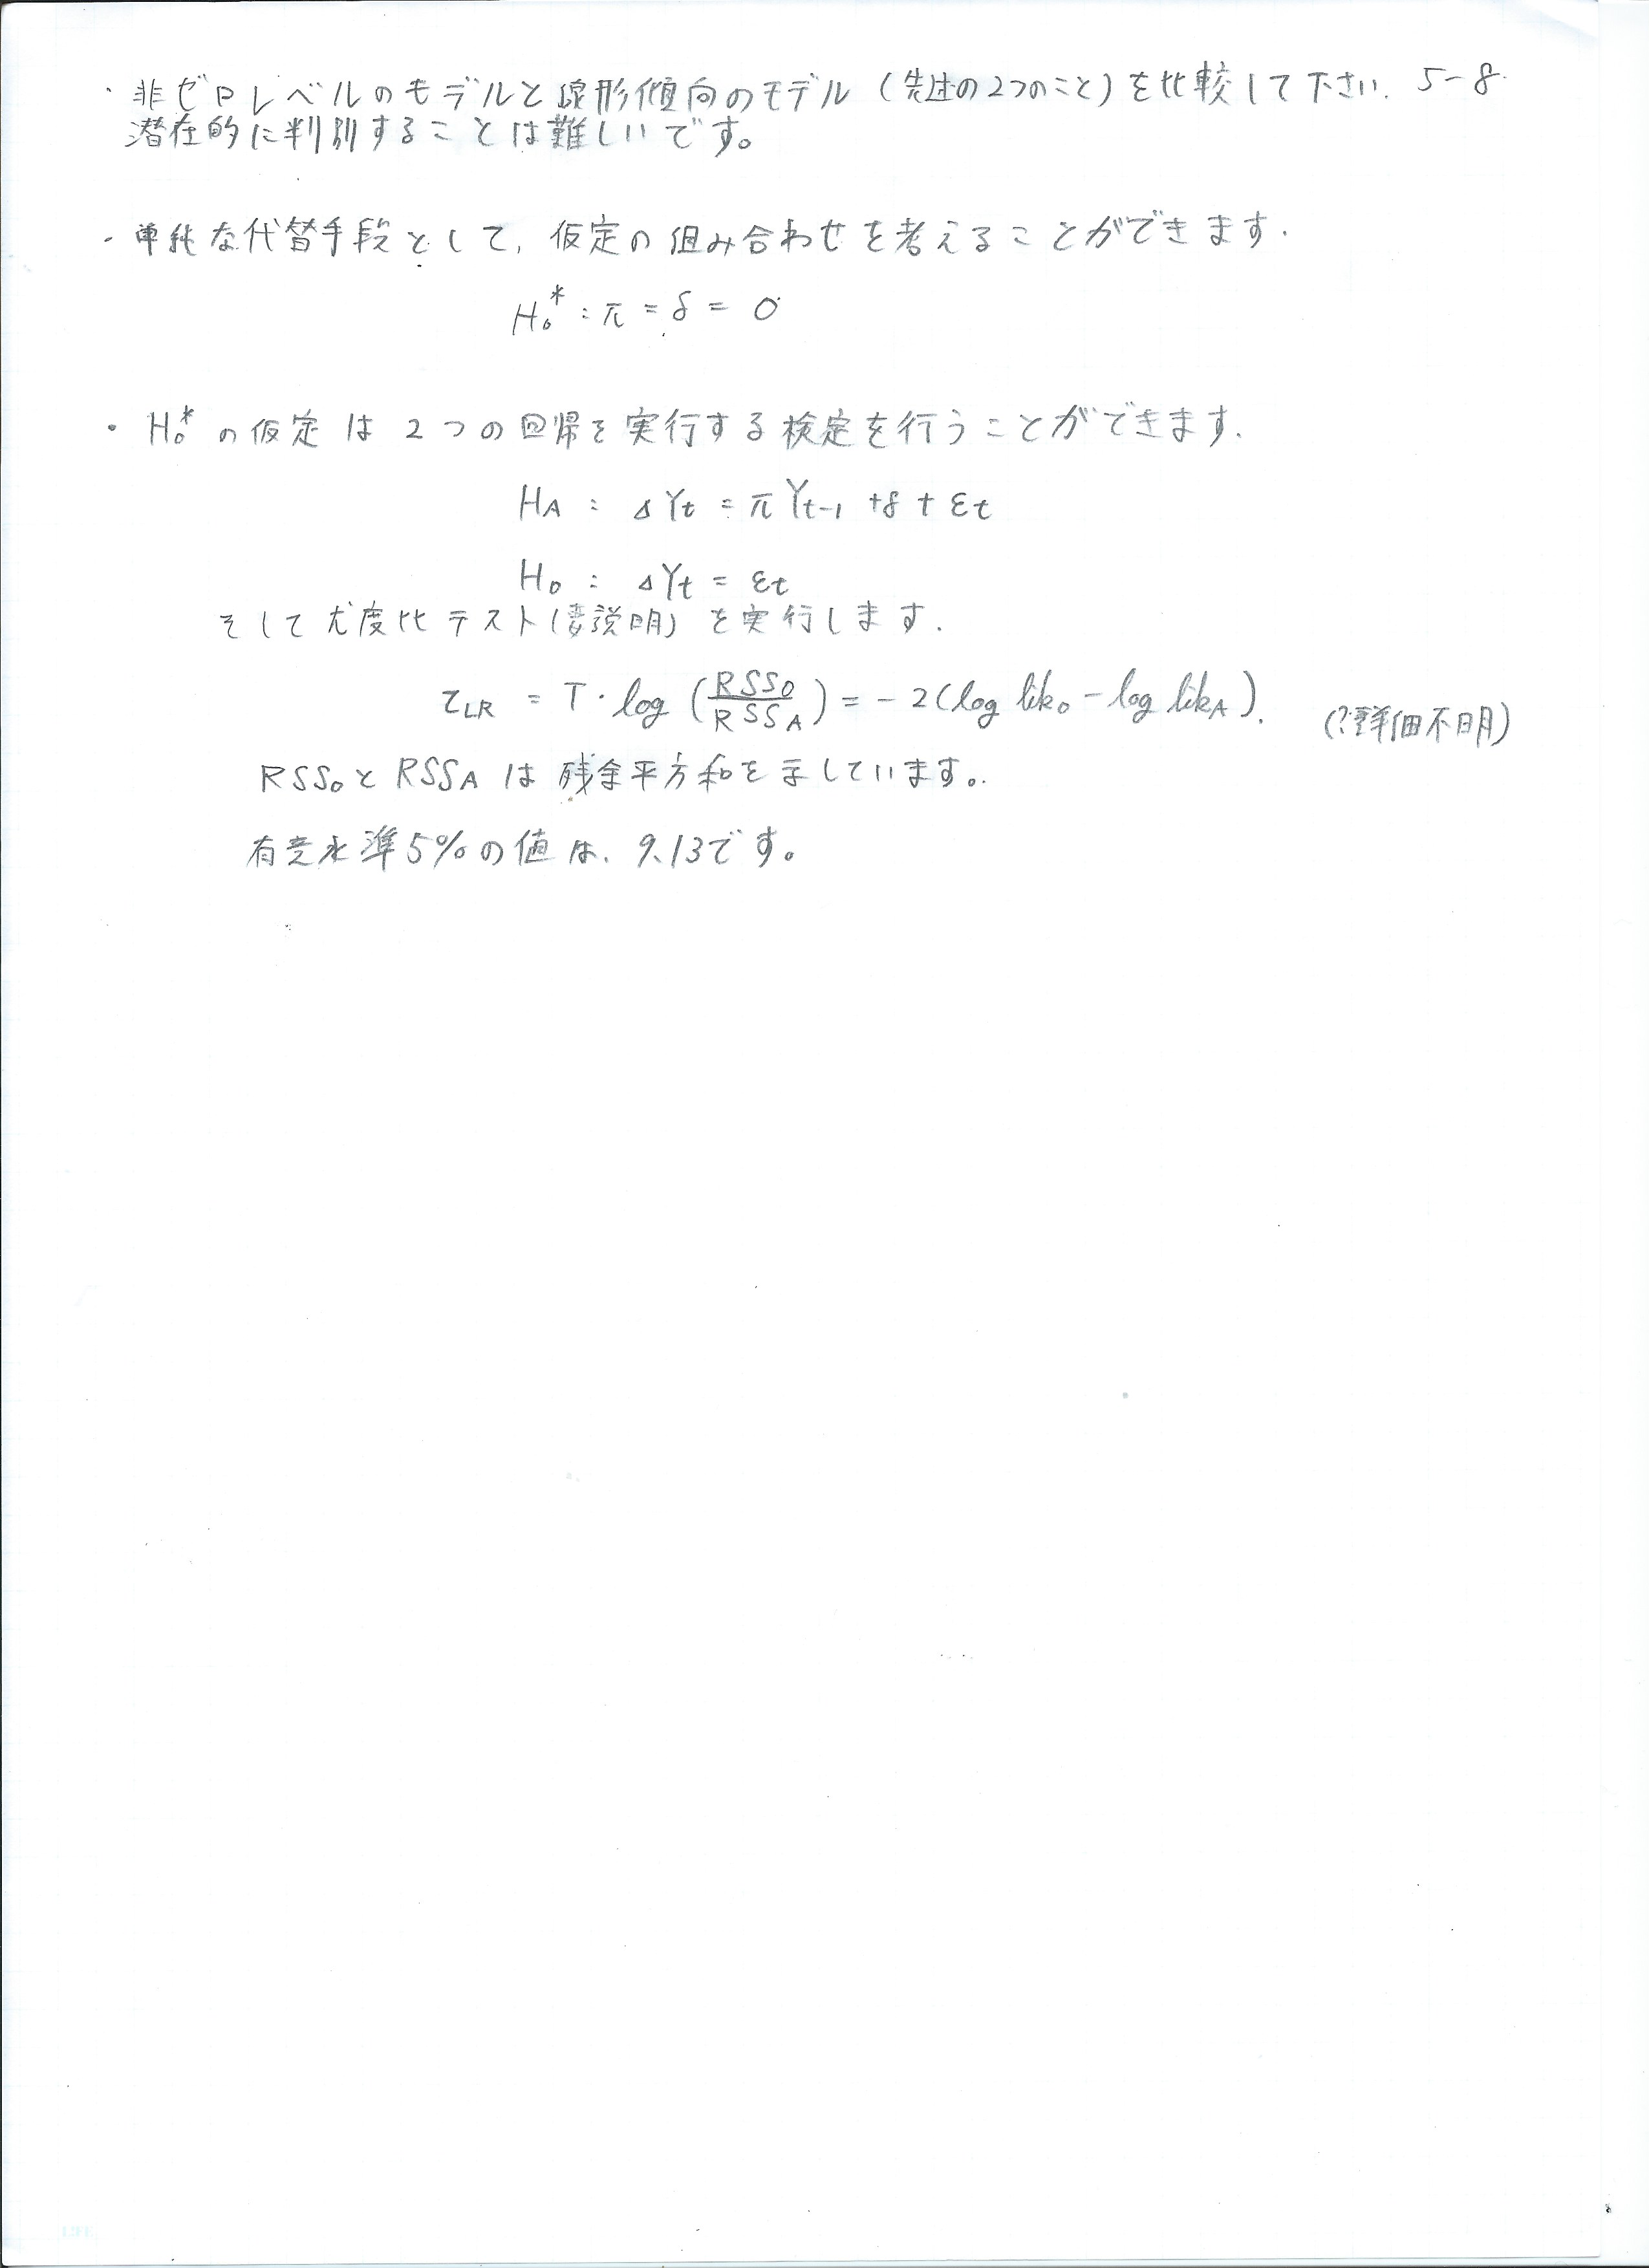 ・非ゼロレベルのモデルと線形傾向のモデル（先述の2つのこと）を比較して下さい. 5-8
潜在的に判別することは難しいです。
・単純な代替手段として, 仮定の組み合わせを考えることができます.
H₀* : π = δ = 0
・H₀* の仮定は2つの回帰を実行する検定を行うことができます.
H_A : ΔY_t = πY_{t-1} + δ + ε_t
H₀ : ΔY_t = ε_t
そして尤度比テスト(要説明) を実行します.
τ_LR = T・log (RSS₀/RSS_A) = -2(log lik₀ - log lik_A). (?詳細不明)
RSS₀とRSS_A は残余平方和を示しています。
有意水準5%の値は, 9.13です。